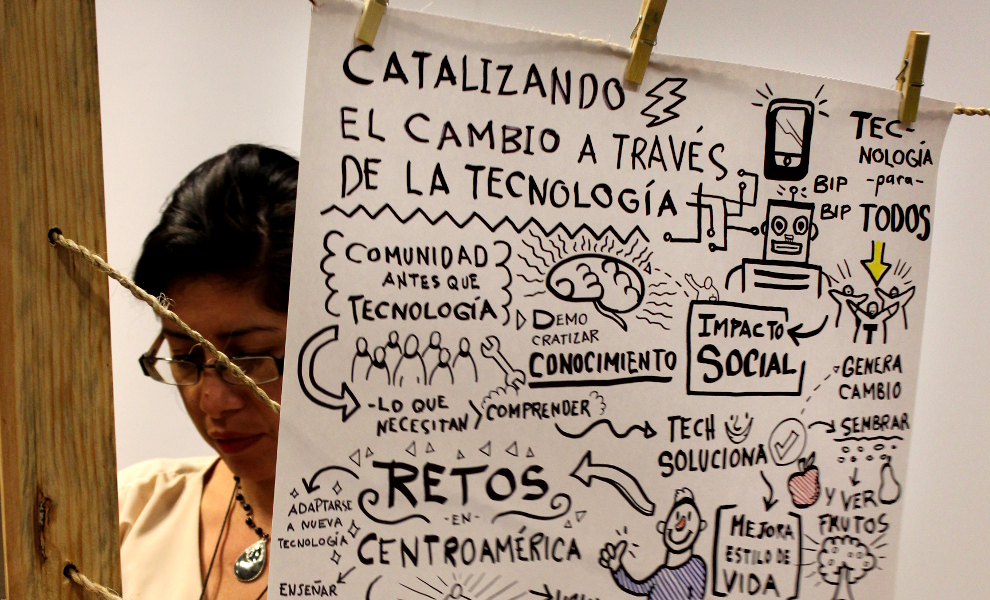 CATALIZANDO
EL CAMBIO A TRAVÉS
DE LA TECNOLOGÍA
TEC-
NOLOGÍA
-para-
TODOS
BIP
BIP
COMUNIDAD
ANTES QUE
TECNOLOGÍA
DEMO
CRATIZAR
CONOCIMIENTO
IMPACTO
SOCIAL
GENERA
CAMBIO
-LO QUE
NECESITAN
COMPRENDER
TECH
SOLUCIONA
SEMBRAR
Y VER
FRUTOS
RETOS
-EN-
CENTROAMÉRICA
ADAPTARSE
A NUEVA
TECNOLOGÍA
ENSEÑAR
MEJORA
ESTILO DE
VIDA